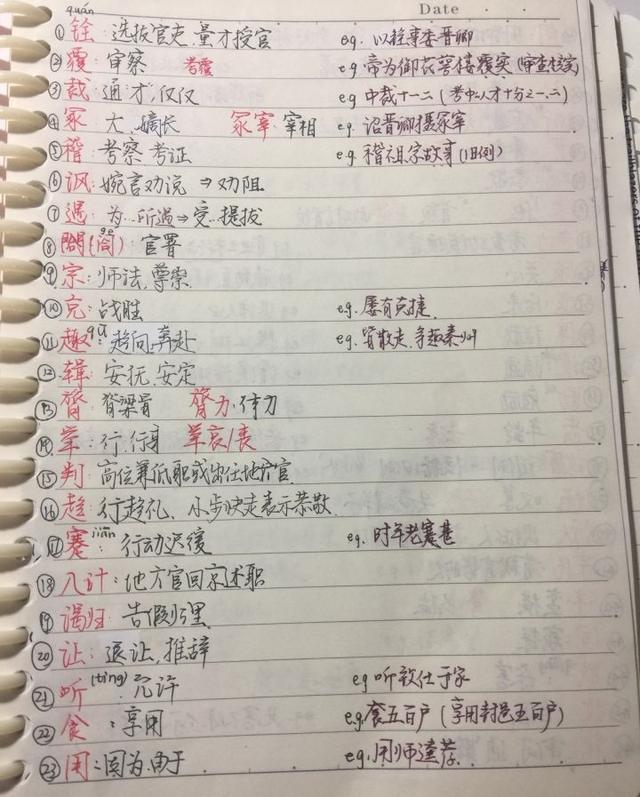 quán Date
①铨:选拔官吏,量才授官 eg. 以铨事委晋卿
②覆 审察 考覆 eg 帝为御衣箬楼覆实(审查核实)
③裁 通"才",仅仅 eg 中裁十一二(考中人才十分之一、二)
④冢 大、嫡长 冢宰:宰相 eg. 诏晋卿摄冢宰
⑤稽:考察 考证 eg. 稽祖宗故事(旧例)
⑥讽:婉言劝说 ⇒ 劝阻
⑦遇:为…所遇⇒受…提拔
⑧閤(阁) 官署
⑨宗:师法,尊崇
⑩克:战胜 eg. 屡有克捷
⑪趣qū:趋向.奔赴 eg. 皆散走,争趣秦州
⑫辑:安抚.安定
⑬膂:脊梁骨 膂力.体力
⑭ 行,行身
⑮判:高位兼低职或出任地方官
⑯趋:行趋礼、小步快走表示恭敬
⑰蹇jiǎn:行动迟缓 eg. 时年老蹇甚
⑱入计:地方官回京述职
⑲谒归:告假归里
⑳让:退让,推辞
㉑听(tìng):允许 eg 听致仕于家
㉒食:享用 eg.食五百户(享用封邑五百户)
㉓用:因为.由于 eg.用师逵荐